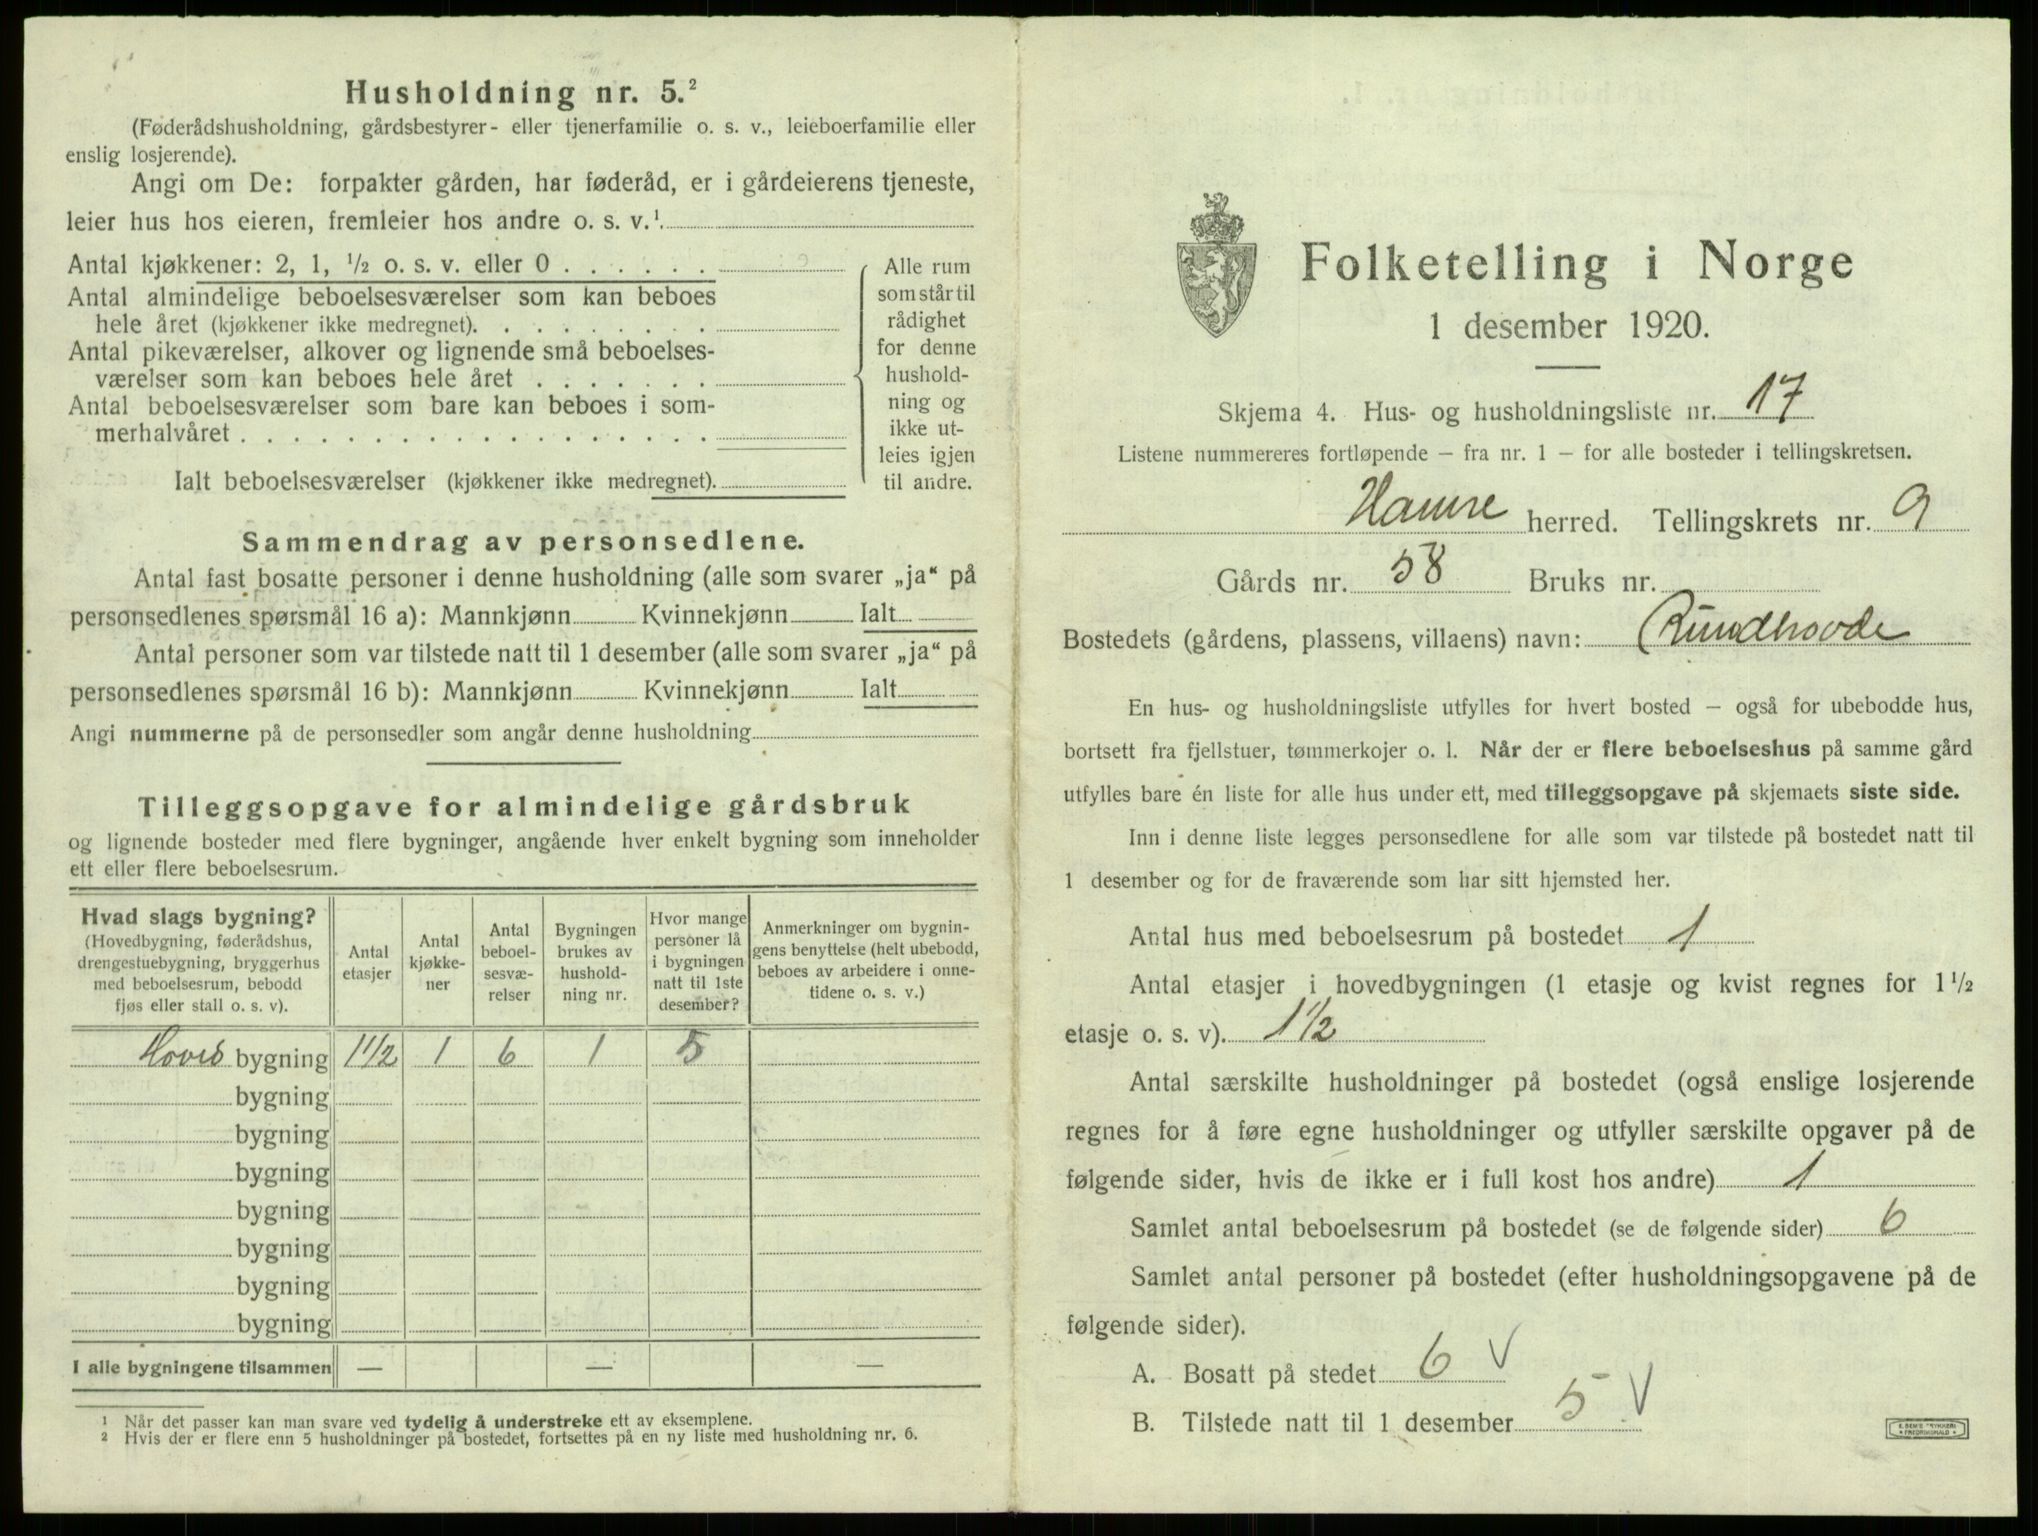 Husholdning nr. 5.²
(Føderådshusholdning, gårdsbestyrer- eller tjenerfamilie o. s. v., leieboerfamilie eller
enslig losjerende).
Angi om De: forpakter gården, har føderåd, er i gårdeierens tjeneste,
leier hus hos eieren, fremleier hos andre o. s. v.¹.
Antal kjøkkener: 2, 1, ½ o. s. v. eller 0 . . . . . .
Antal almindelige beboelsesværelser som kan beboes
hele året (kjøkkener ikke medregnet). . . . . . . . .
Antal pikeværelser, alkover og lignende små beboelses-
værelser som kan beboes hele året . . . . . . .
Antal beboelsesværelser som bare kan beboes i som-
merhalvåret . . . . . . . . . . . . . . . . . .
Ialt beboelsesværelser (kjøkkener ikke medregnet).
Alle rum
som står til
rådighet
for denne
hushold-
ning og
ikke ut-
leies igjen
til andre.
Sammendrag av personsedlene.
Antal fast bosatte personer i denne husholdning (alle som svarer „ja“ på
personsedlenes spørsmål 16 a): Mannkjønn Kvinnekjønn Ialt
Antal personer som var tilstede natt til 1 desember (alle som svarer „ja“ på
personsedlenes spørsmål 16 b): Mannkjønn Kvinnekjønn Ialt
Angi nummerne på de personsedler som angår denne husholdning
Tilleggsopgave for almindelige gårdsbruk
og lignende bosteder med flere bygninger, angående hver enkelt bygning som inneholder
ett eller flere beboelsesrum.
Hvad slags bygning?
(Hovedbygning, føderådshus,
drengestuebygning, bryggerhus
med beboelsesrum, bebodd
fjøs eller stall o. s. v).
Antal
etasjer
Antal
kjøkke-
ner
Antal
beboel-
sesvæ-
relser
Bygningen
brukes av
hushold-
ning nr.
Hvor mange
personer lå
i bygningen
natt til 1ste
desember?
Anmerkninger om bygnin-
gens benyttelse (helt ubebodd,
beboes av arbeidere i onne-
tidene o. s. v.)
Hoved bygning 1½ 1 6 1 5
bygning
bygning
bygning
bygning
bygning
bygning
bygning
I alle bygningene tilsammen — — —
¹ Når det passer kan man svare ved tydelig å understreke ett av eksemplene.
² Hvis der er flere enn 5 husholdninger på bostedet, fortsettes på en ny liste med husholdning nr. 6.
Folketelling i Norge
1 desember 1920.
Skjema 4. Hus- og husholdningsliste nr. 17
Listene nummereres fortløpende – fra nr. 1 – for alle bosteder i tellingskretsen.
Hamre herred. Tellingskrets nr. 9
Gårds nr. 58 Bruks nr.
Bostedets (gårdens, plassens, villaens) navn: Rundhovde
En hus- og husholdningsliste utfylles for hvert bosted – også for ubebodde hus,
bortsett fra fjellstuer, tømmerkojer o. l. Når der er flere beboelseshus på samme gård
utfylles bare én liste for alle hus under ett, med tilleggsopgave på skjemaets siste side.
Inn i denne liste legges personsedlene for alle som var tilstede på bostedet natt til
1 desember og for de fraværende som har sitt hjemsted her.
Antal hus med beboelsesrum på bostedet 1
Antal etasjer i hovedbygningen (1 etasje og kvist regnes for 1½
etasje o. s. v). 1½
Antal særskilte husholdninger på bostedet (også enslige losjerende
regnes for å føre egne husholdninger og utfyller særskilte opgaver på de
følgende sider, hvis de ikke er i full kost hos andre) 1
Samlet antal beboelsesrum på bostedet (se de følgende sider) 6
Samlet antal personer på bostedet (efter husholdningsopgavene på de
følgende sider).
A. Bosatt på stedet 6 V
B. Tilstede natt til 1 desember 5 V